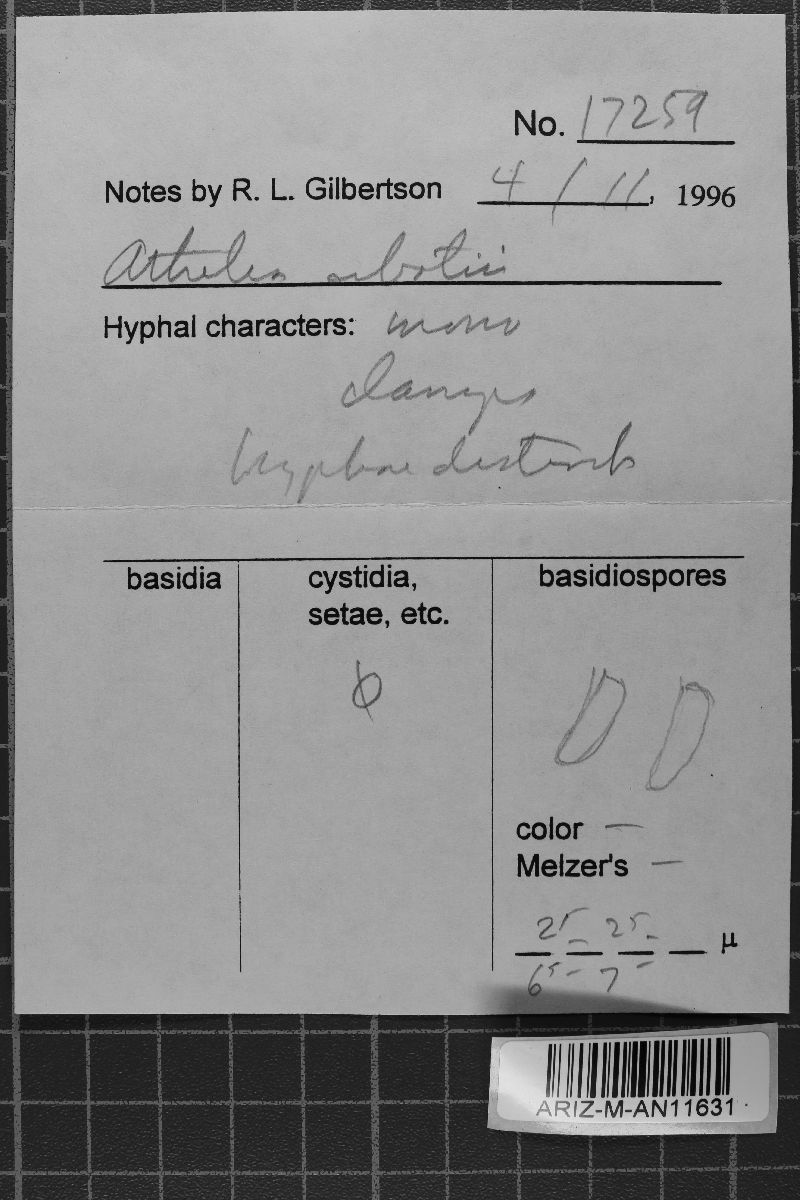 No. 17259
Notes by R. L. Gilbertson 4/11, 1996
Athelia sibotii
Hyphal characters: mono
clamps
hyphae distinct
basidia
cystidia,
setae, etc.
basidiospores
color —
Melzer's —
μ
ARIZ-M-AN11631